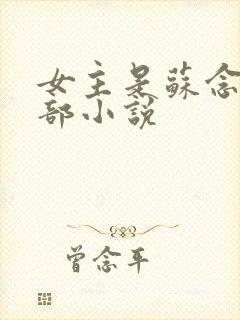 女主是蘇念
部小說
曾念平